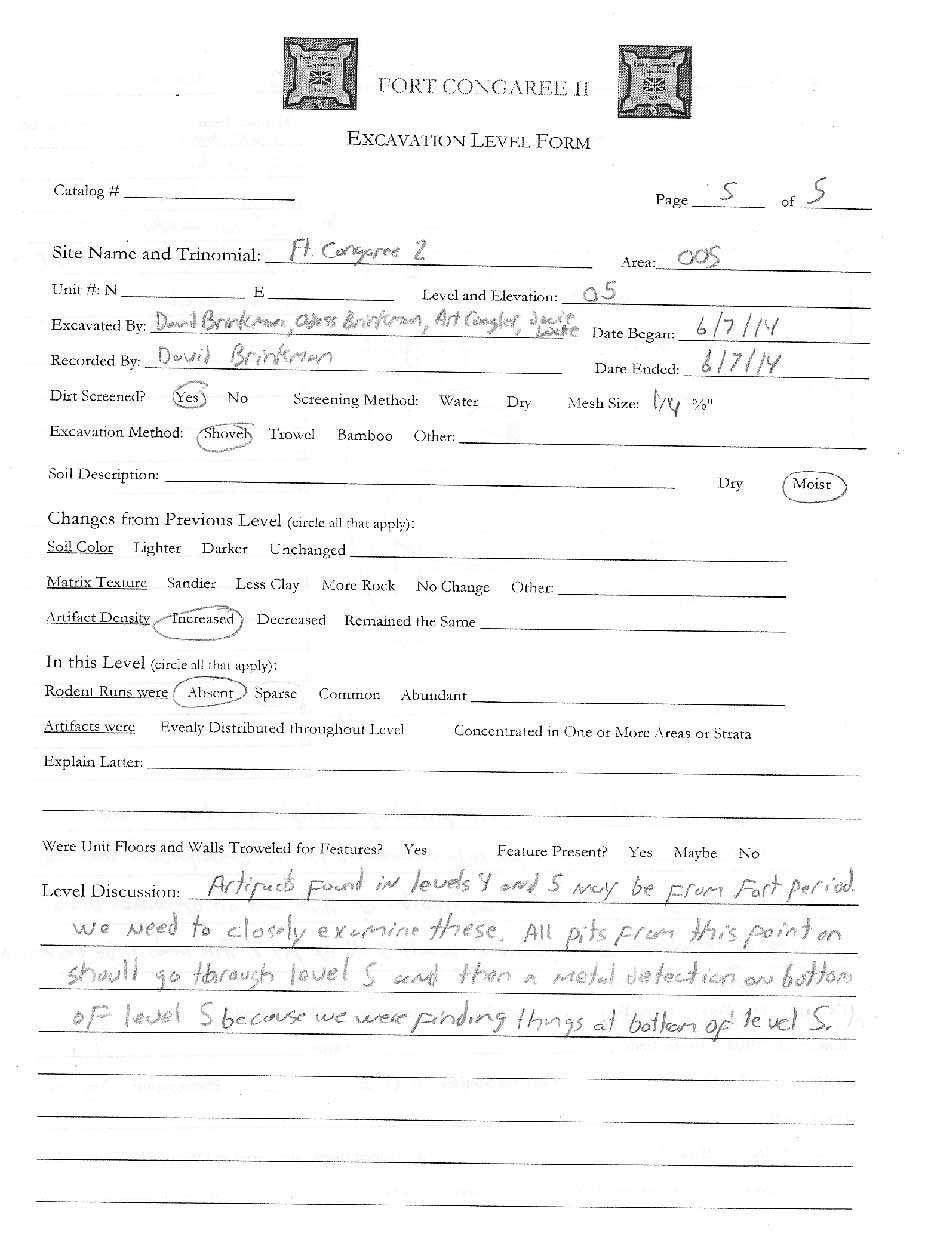 FORT CONGAREE II
EXCAVATION LEVEL FORM
Catalog #
Page 5 of 5
Site Name and Trinomial: Ft. Congaree 2 Area: 005
Unit #: N E Level and Elevation: 05
Excavated By: David Brinkman, Brinkman, Art Date Began: 6/7/14
Recorded By: David Brinkman Date Ended: 6/7/14
Dirt Screened? Yes No Screening Method: Water Dry Mesh Size: 1/4 %"
Excavation Method: Shovel Trowel Bamboo Other:
Soil Description: Dry Moist
Changes from Previous Level (circle all that apply):
Soil Color Lighter Darker Unchanged
Matrix Texture Sandier Less Clay More Rock No Change Other:
Artifact Density Increased Decreased Remained the Same
In this Level (circle all that apply):
Rodent Runs were Absent Sparse Common Abundant
Artifacts were Evenly Distributed throughout Level Concentrated in One or More Areas or Strata
Explain Latter:
Were Unit Floors and Walls Troweled for Features? Yes Feature Present? Yes Maybe No
Level Discussion: Artifacts found in levels 4 and 5 may be from Fort period.
we need to closely examine these. All pits from this point on
should go through level 5 and then a metal detection on bottom
of level 5 because we were finding things at bottom of level 5.